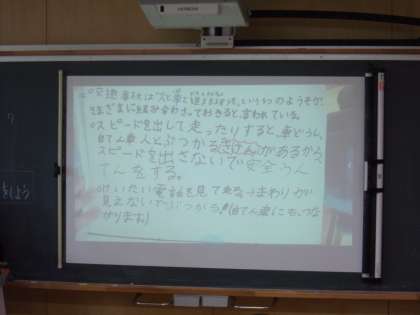 HITACHI
○交通事故は「人と車と道(どうろ)」という3つのようそが、
さまざまに組み合わさっておきると、言われている。
○スピードを出して走ったりすると、車どうし、
自てん車、人とぶつかるきけんがあるから、
スピードを出さないで安全うん
てんをする。
○けいたい電話を見て
見えないでぶつかる!(自てん車にもつな
がります)